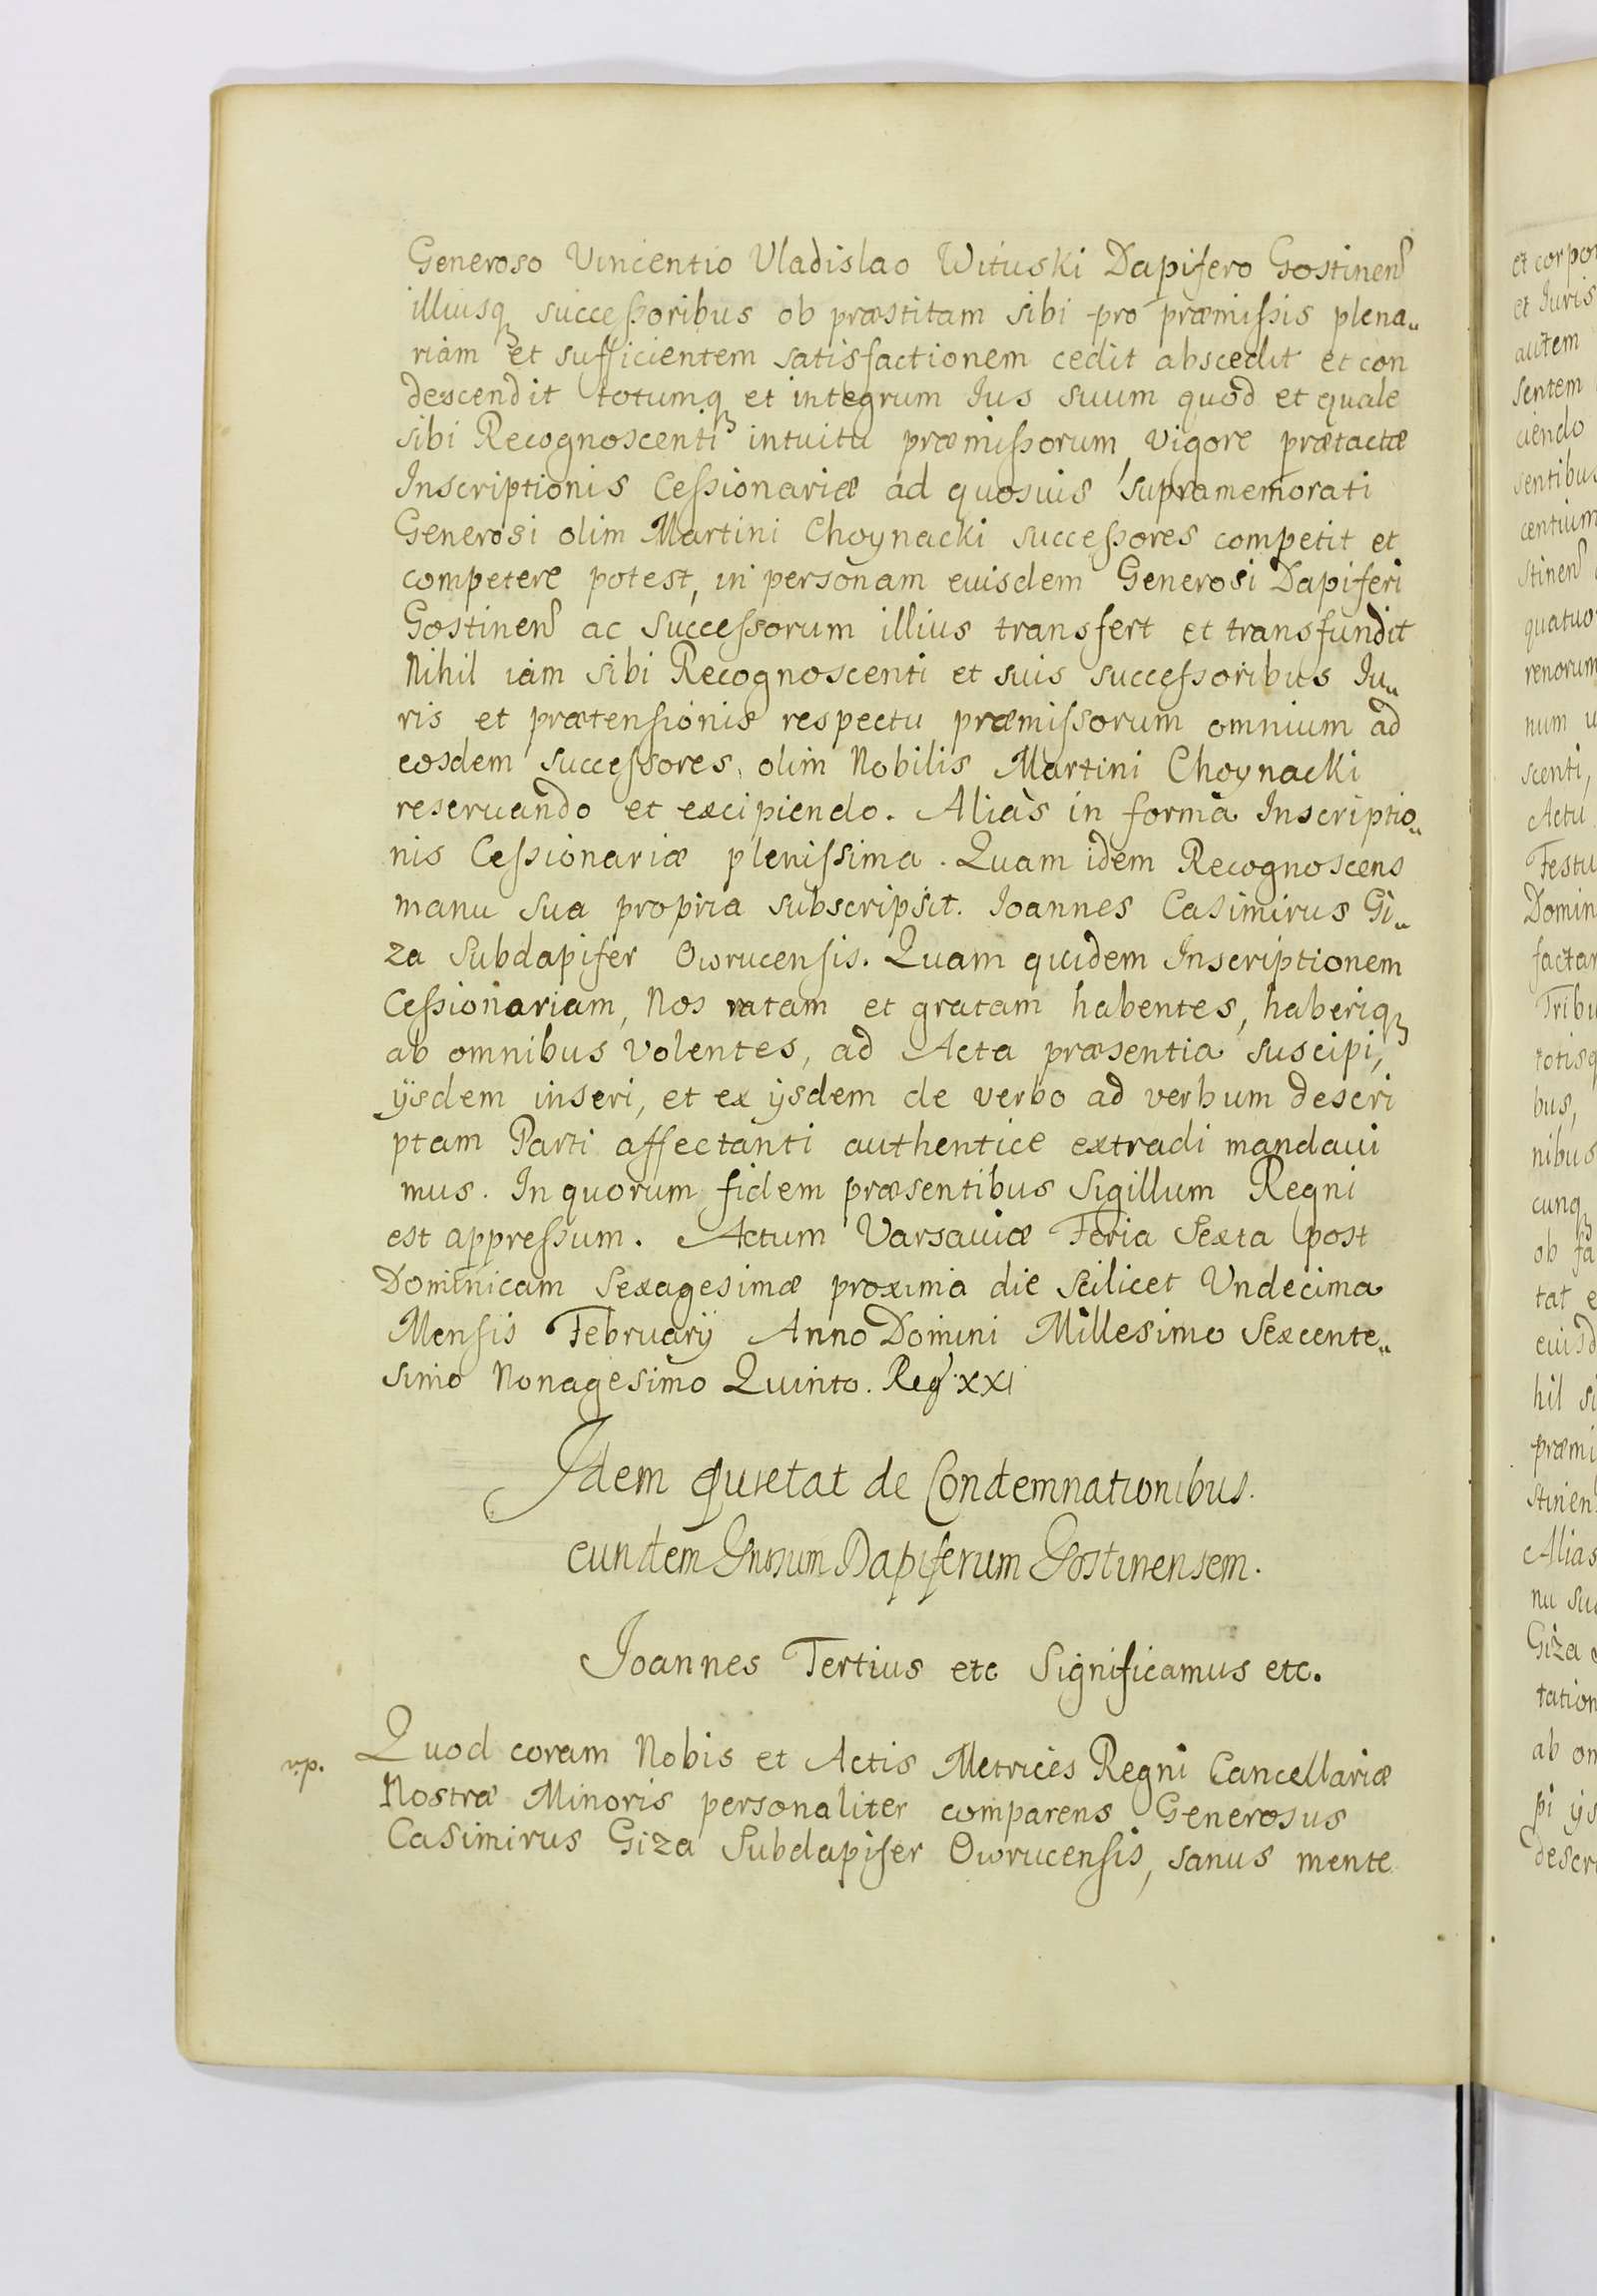 Generoso Vincentio Vladislao Wituski Dapifero Gostinens
illiusq successoribus ob præstitam sibi pro præmissis plena„
riam et sufficientem satisfactionem cedit abscedit et con
descendit totumq et integrum Ius suum quod et quale
sibi Recognoscenti intuitu præmissorum, vigore prætactæ
Inscriptionis Cessionariæ ad quosuis supramemorati
Generosi olim Martini Choynacki successores competit et
competere potest, in personam euisdem Generosi Dapiferi
Gostinens ac Successorum illius transfert et transfundit
Nihil iam sibi Recognoscenti et suis successoribus Iu„
ris et prætensionis respectu præmissorum omnium ad
eosdem successores, olim Nobilis Martini Choynacki
reseruando et excipiendo. Aliàs in formâ Inscriptio„
nis Cessionariæ plenissima. Quam idem Recognoscens
manu sua propria subscripsit. Ioannes Casimirus Gi„
za Subdapifer Owrucensis. Quam quidem Inscriptionem
Cessionariam, Nos ratam et gratam habentes, haberiq
ab omnibus volentes, ad Acta præsentia suscipi,
ijsdem inseri, et ex ijsdem de verbo ad verbum descri
ptam Parti affectanti authentice extradi mandaui
mus. In quorum fidem præsentibus Sigillum Regni
est appressum. Actum Varsauiæ Feria Sexta post
Dominicam Sexagesimæ proxima die scilicet Vndecima
Mensis Februarij Anno Domini Millesimo Sexcente„
simo Nonagesimo Quinto. Reg XXI
Idem quietat de Condemnationibus
eundem Gnosum Dapiferum Gostinensem.
Ioannes Tertius etc Significamus etc.
v.p. Quod coram Nobis et Actis Metrices Regni Cancellariæ
Nostræ Minoris personaliter comparens Generosus
Casimirus Giza Subdapifer Owrucensis, sanus mente
et corpor
et Iuris
autem
sentem
ciendo
sentibus
centium
stinens
quatuo
renorum
num
scenti,
Actu
Festu
Domin
factar
Tribu
totisq
bus,
nibus
cunq
ob fa
tat e
euisd
hil si
præmi
stinens
Alias
nu sua
Giza
tation
ab om
pi ijs
descri